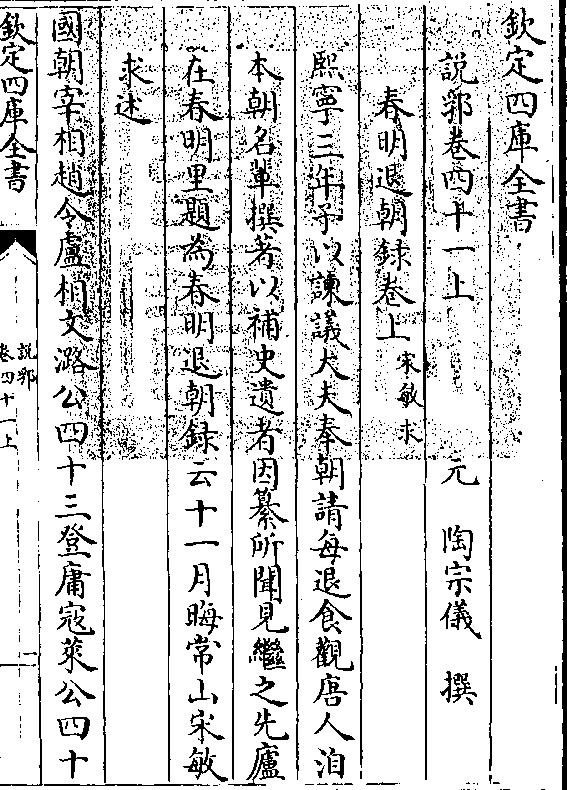 欽定四庫全書
說郛卷四十一上 元 陶宗儀 撰
春明退朝録卷上 宋敏求
熙寧三年予以諫議大夫奉朝請每退食觀唐人洎
本朝名輩撰著以補史遺者因纂所聞見繼之先廬
在春明里題為春明退朝録云十一月晦常山宋敏
求述
國朝宰相趙令盧相文潞公四十三登庸寇萊公四十
欽定四庫全書
說郛
卷四十一上
一